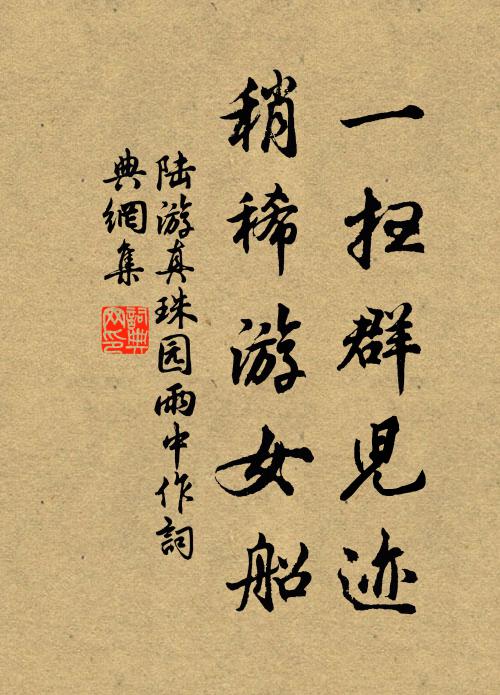 一扫群兒迹
稍稀游女船
陆游真珠园雨中作詞
典網集
詞典
网印